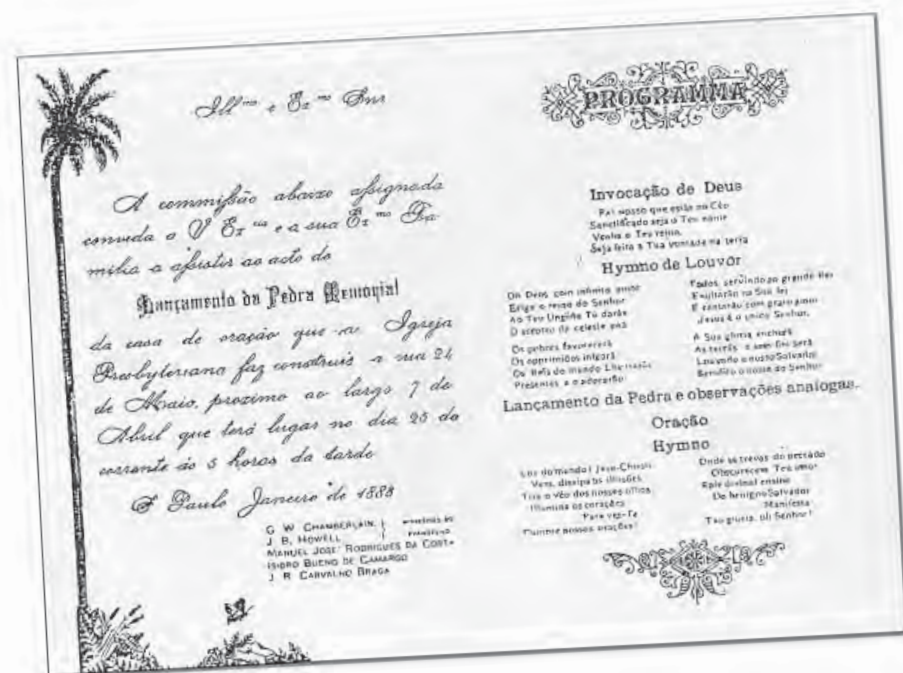 Illmo e Exmo Snr
A commissão abaixo assignada
convida a V Exma e a sua Exma Fa-
milia a assistir ao acto do
Lançamento da Pedra Memorial
da casa de oração que a Igreja
Presbyteriana faz construir a rua 24
de Maio, proximo ao largo 7 de
Abril que terá lugar no dia 25 do
corrente ás 5 horas da tarde
S Paulo Janeiro de 1888
G W CHAMBERLAIN
J B. HOWELL
MANUEL JOSÉ RODRIGUES DA COSTA
ISIDRO BUENO DE CAMARGO
J R CARVALHO BRAGA
PROGRAMMA
Invocação de Deus
Pai nosso que estás no Céo
Sanctificado seja o Teu nome
Venha o Teu reino,
Seja feita a Tua vontade na terra
Hymno de Louvor
Oh Deus, com infinito amor
Erige o reino do Senhor
Ao Teu Ungido Tu darás
O sceptro da celeste paz
Os pobres favorecerá
Os opprimidos
Os Reis do mundo
Presentes e o adorarão
Todos, servindo ao grande Rei
Exultarão na Sua lei
E cantarão com grato amor
Jesus é o unico Senhor.
A Sua gloria encherá
As terras e sem fim será
Louvado o nosso Salvador
Bendito o nome do Senhor
Lançamento da Pedra e observações analogas.
Oração
Hymno
Luz do mundo! Jesu-Christo
Vem, dissipa as illusões
Tira o véo dos nossos olhos
Illumina os corações
Para ver-Te
Cumpre nossas orações!
Onde as trevas do peccado
Obscurecem Teu amor
divinal ensino
Do benigno Salvador
Manifesta
Tua gloria, oh Senhor!